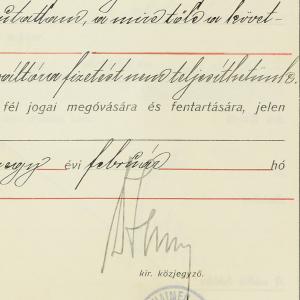 utattam, a mire tőle a követ-
váltóra fizetést nem teljesíthetünk.
fél jogai megóvására és fentartására, jelen
egy évi február hó
kir. közjegyző.